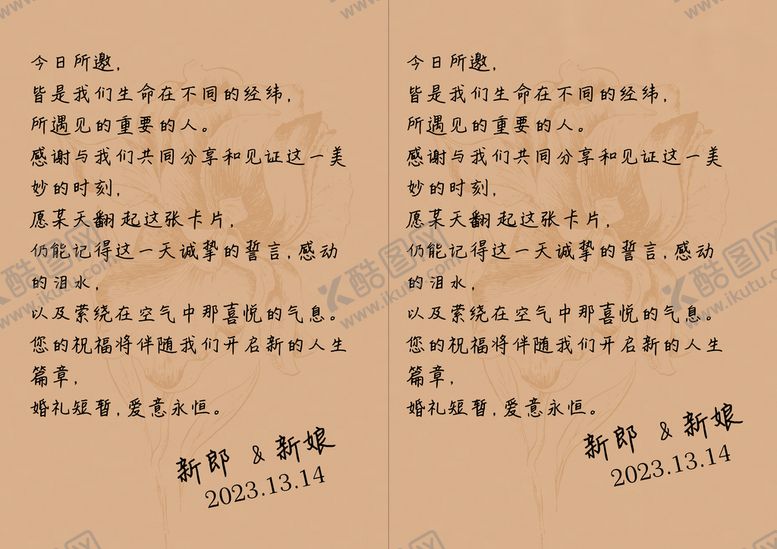 今日所邀,
皆是我们生命在不同的经纬,
所遇见的重要的人。
感谢与我们共同分享和见证这一美
妙的时刻,
愿某天翻起这张卡片,
仍能记得这一天诚挚的誓言,感动
的泪水,
以及萦绕在空气中那喜悦的气息。
您的祝福将伴随我们开启新的人生
篇章,
婚礼短暂,爱意永恒。
新郎 & 新娘
2023.13.14
今日所邀,
皆是我们生命在不同的经纬,
所遇见的重要的人。
感谢与我们共同分享和见证这一美
妙的时刻,
愿某天翻起这张卡片,
仍能记得这一天诚挚的誓言,感动
的泪水,
以及萦绕在空气中那喜悦的气息。
您的祝福将伴随我们开启新的人生
篇章,
婚礼短暂,爱意永恒。
新郎 & 新娘
2023.13.14
酷图网
www.ikutu.com